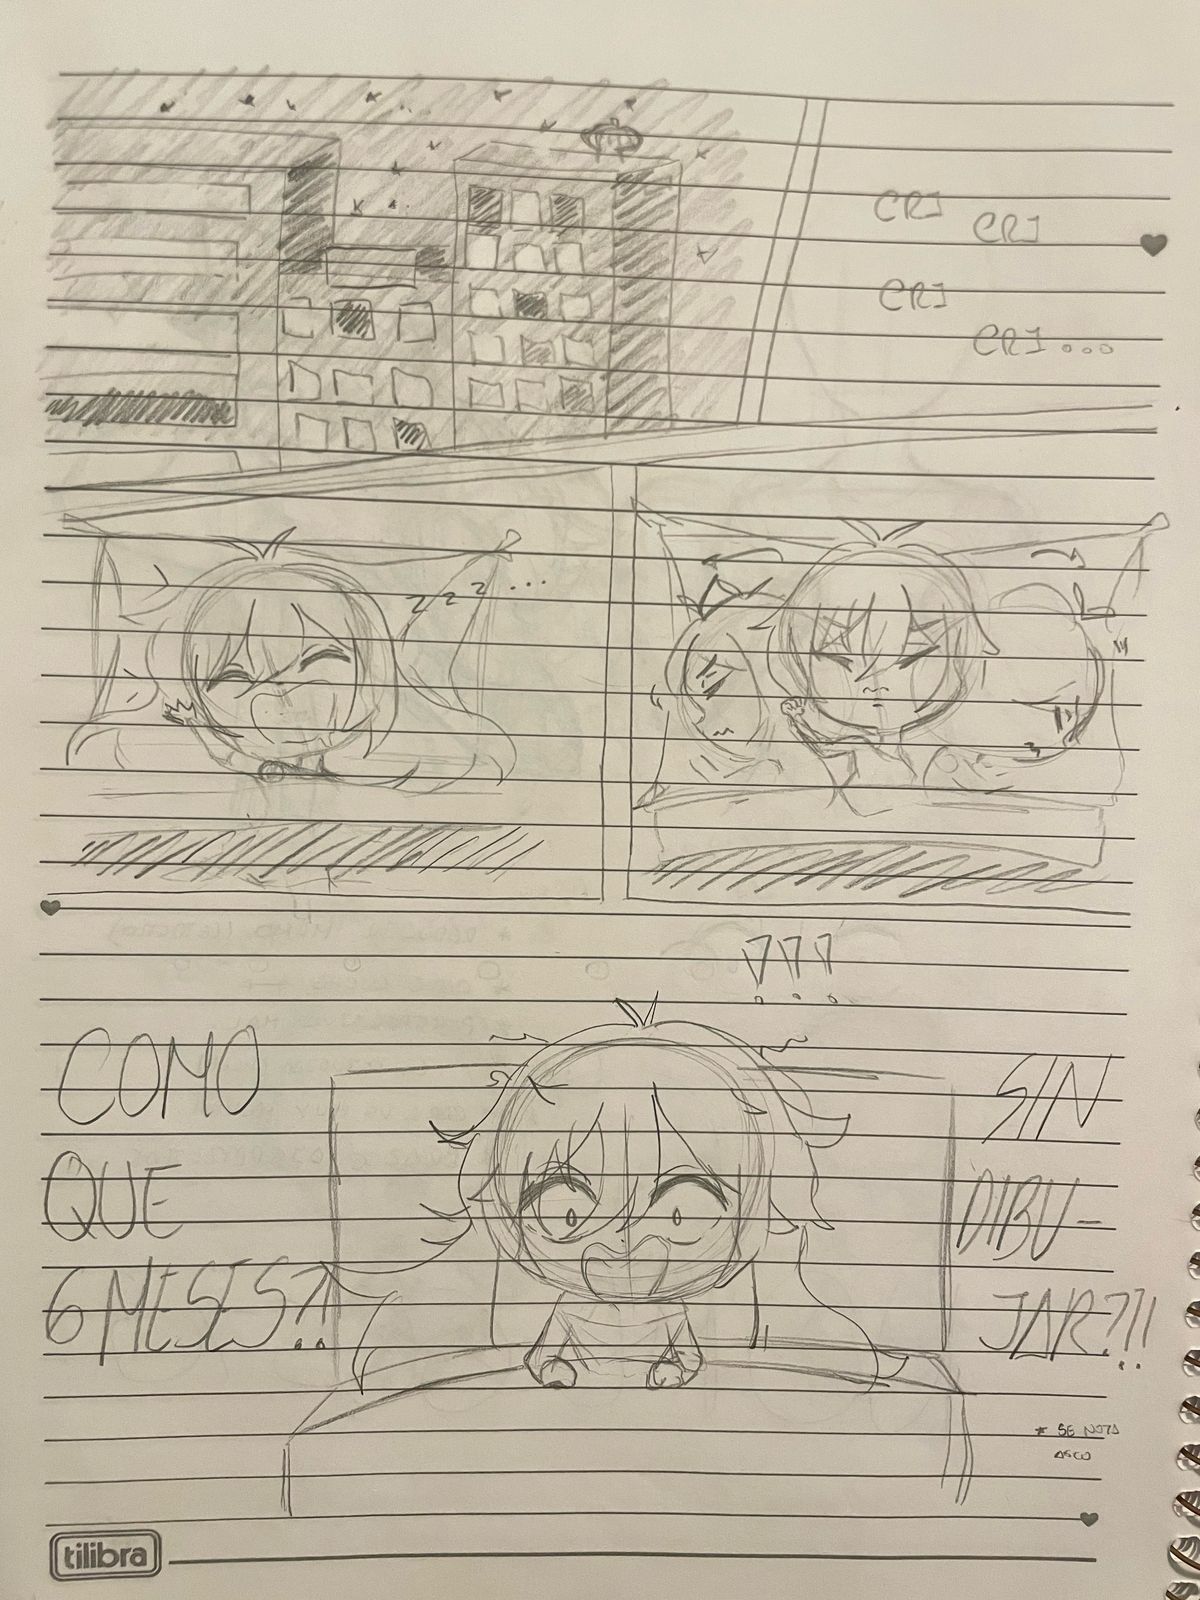 CRI
CRI
CRI
CRI...
z z z ...
???
COMO
QUE
6 MESES?!
SIN
DIBU-
JAR?!!
* SE NOTA
ASCO
tilibra